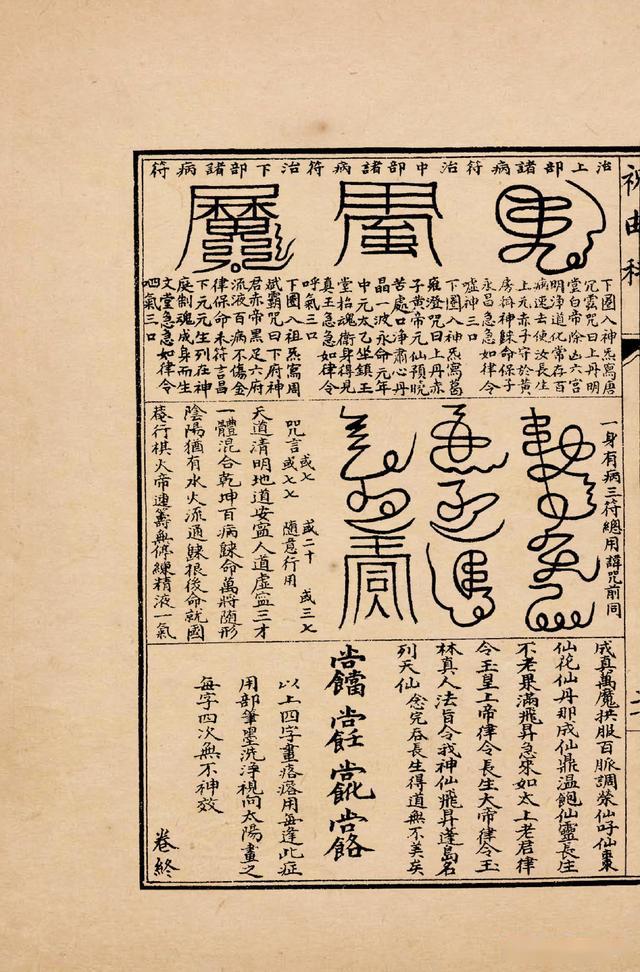 祝由科
治上部諸病符
治中部諸病符
治下部諸病符
下圖入神炁寫唐
冗雲咒曰上丹明
堂白帝除凶六宮
明淨道化常存百
病速去使汝長生
上元赤子守於黃
房拇神餗命保子
永昌急急如律令
噓神三口
下圖入神炁寫葛
雍澄咒曰上丹赤
子黃帝元仙預晓
苦處口淨肅心丹
晶一波永命元年
中元太乙坐鎮王
堂抬魂衛身得見
真王急急如律令
呼氣三口
下圖入祖炁寫周
斌霸咒曰下府神
君赤帝黑足六府
流液百病不傷金
律保命未符言昌
下元元生列在神
庭制魂成身而生
文堂急急如律令
呬氣三口
一身有病三符總用諱咒前同
咒言或七 或二十 或三七
或七七 隨意行用
天道清明地道安寍人道虛寍三才
一體混合乾坤百病餗命萬將隨形
陰陽猶有水火流通餗根後命就國
菴行棋火帝連籌無修練精液一氣
成真萬魔拱服百脈調榮仙呼仙棗
仙花仙丹那成仙鼎温飽仙靈長生
不老果滿飛昇急來如太上老君律
令玉皇上帝律令長生大帝律令玉
林真人法旨令我神仙飛昇蓬島名
列天仙 念完吞長生得道無不美矣
以上四字畫疙瘩用每逢此症
用部筆墨洗淨視向太陽畫之
每字四次無不神效
卷終